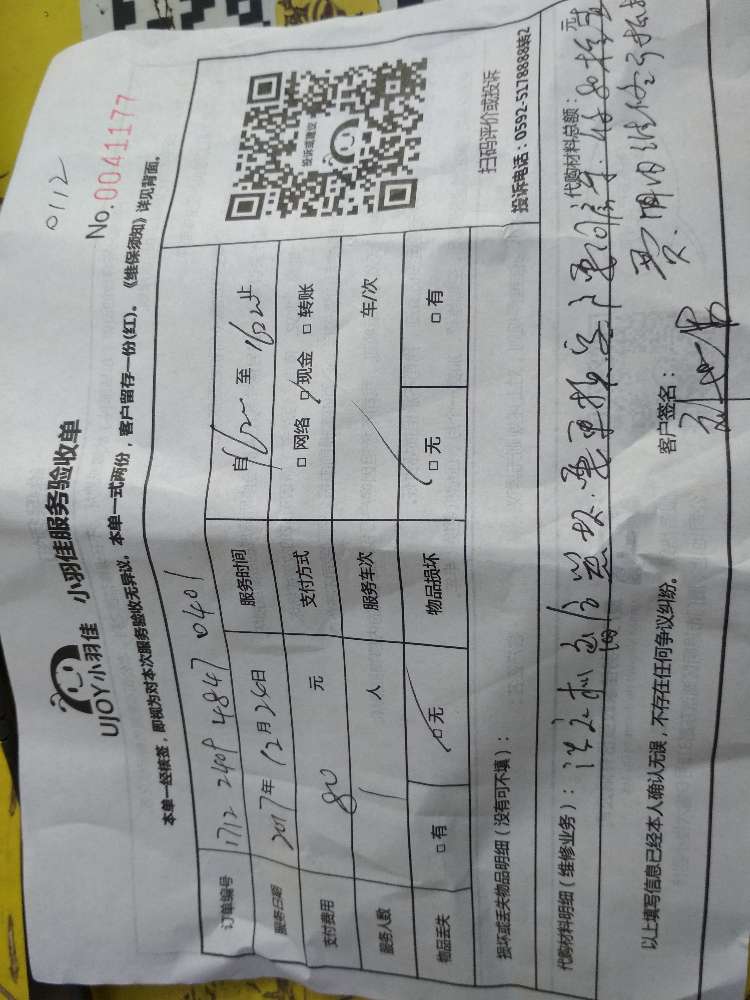 0112
UJOY小羽佳 小羽佳服务验收单
No.0041177
本单一经核签，即视为对本次服务验收无异议。本单一式两份，客户留存一份(红)。《维保须知》详见背面。
订单编号 1712 2409 4847 0401
服务日期 2017年12月26日 服务时间 自 至 止
支付费用 80 元 支付方式 □网络 □现金 □转账
服务人数 1 人 服务车次 车/次
物品丢失 □有 □无 物品损坏 □无 □有
投诉或建议
扫码评价或投诉
投诉电话：0592-5178888转2
损坏或丢失物品明细（没有可不填）：
代购材料明细（维修业务）： 代购材料总额： 元
以上填写信息已经本人确认无误，不存在任何争议纠纷。 客户签名：